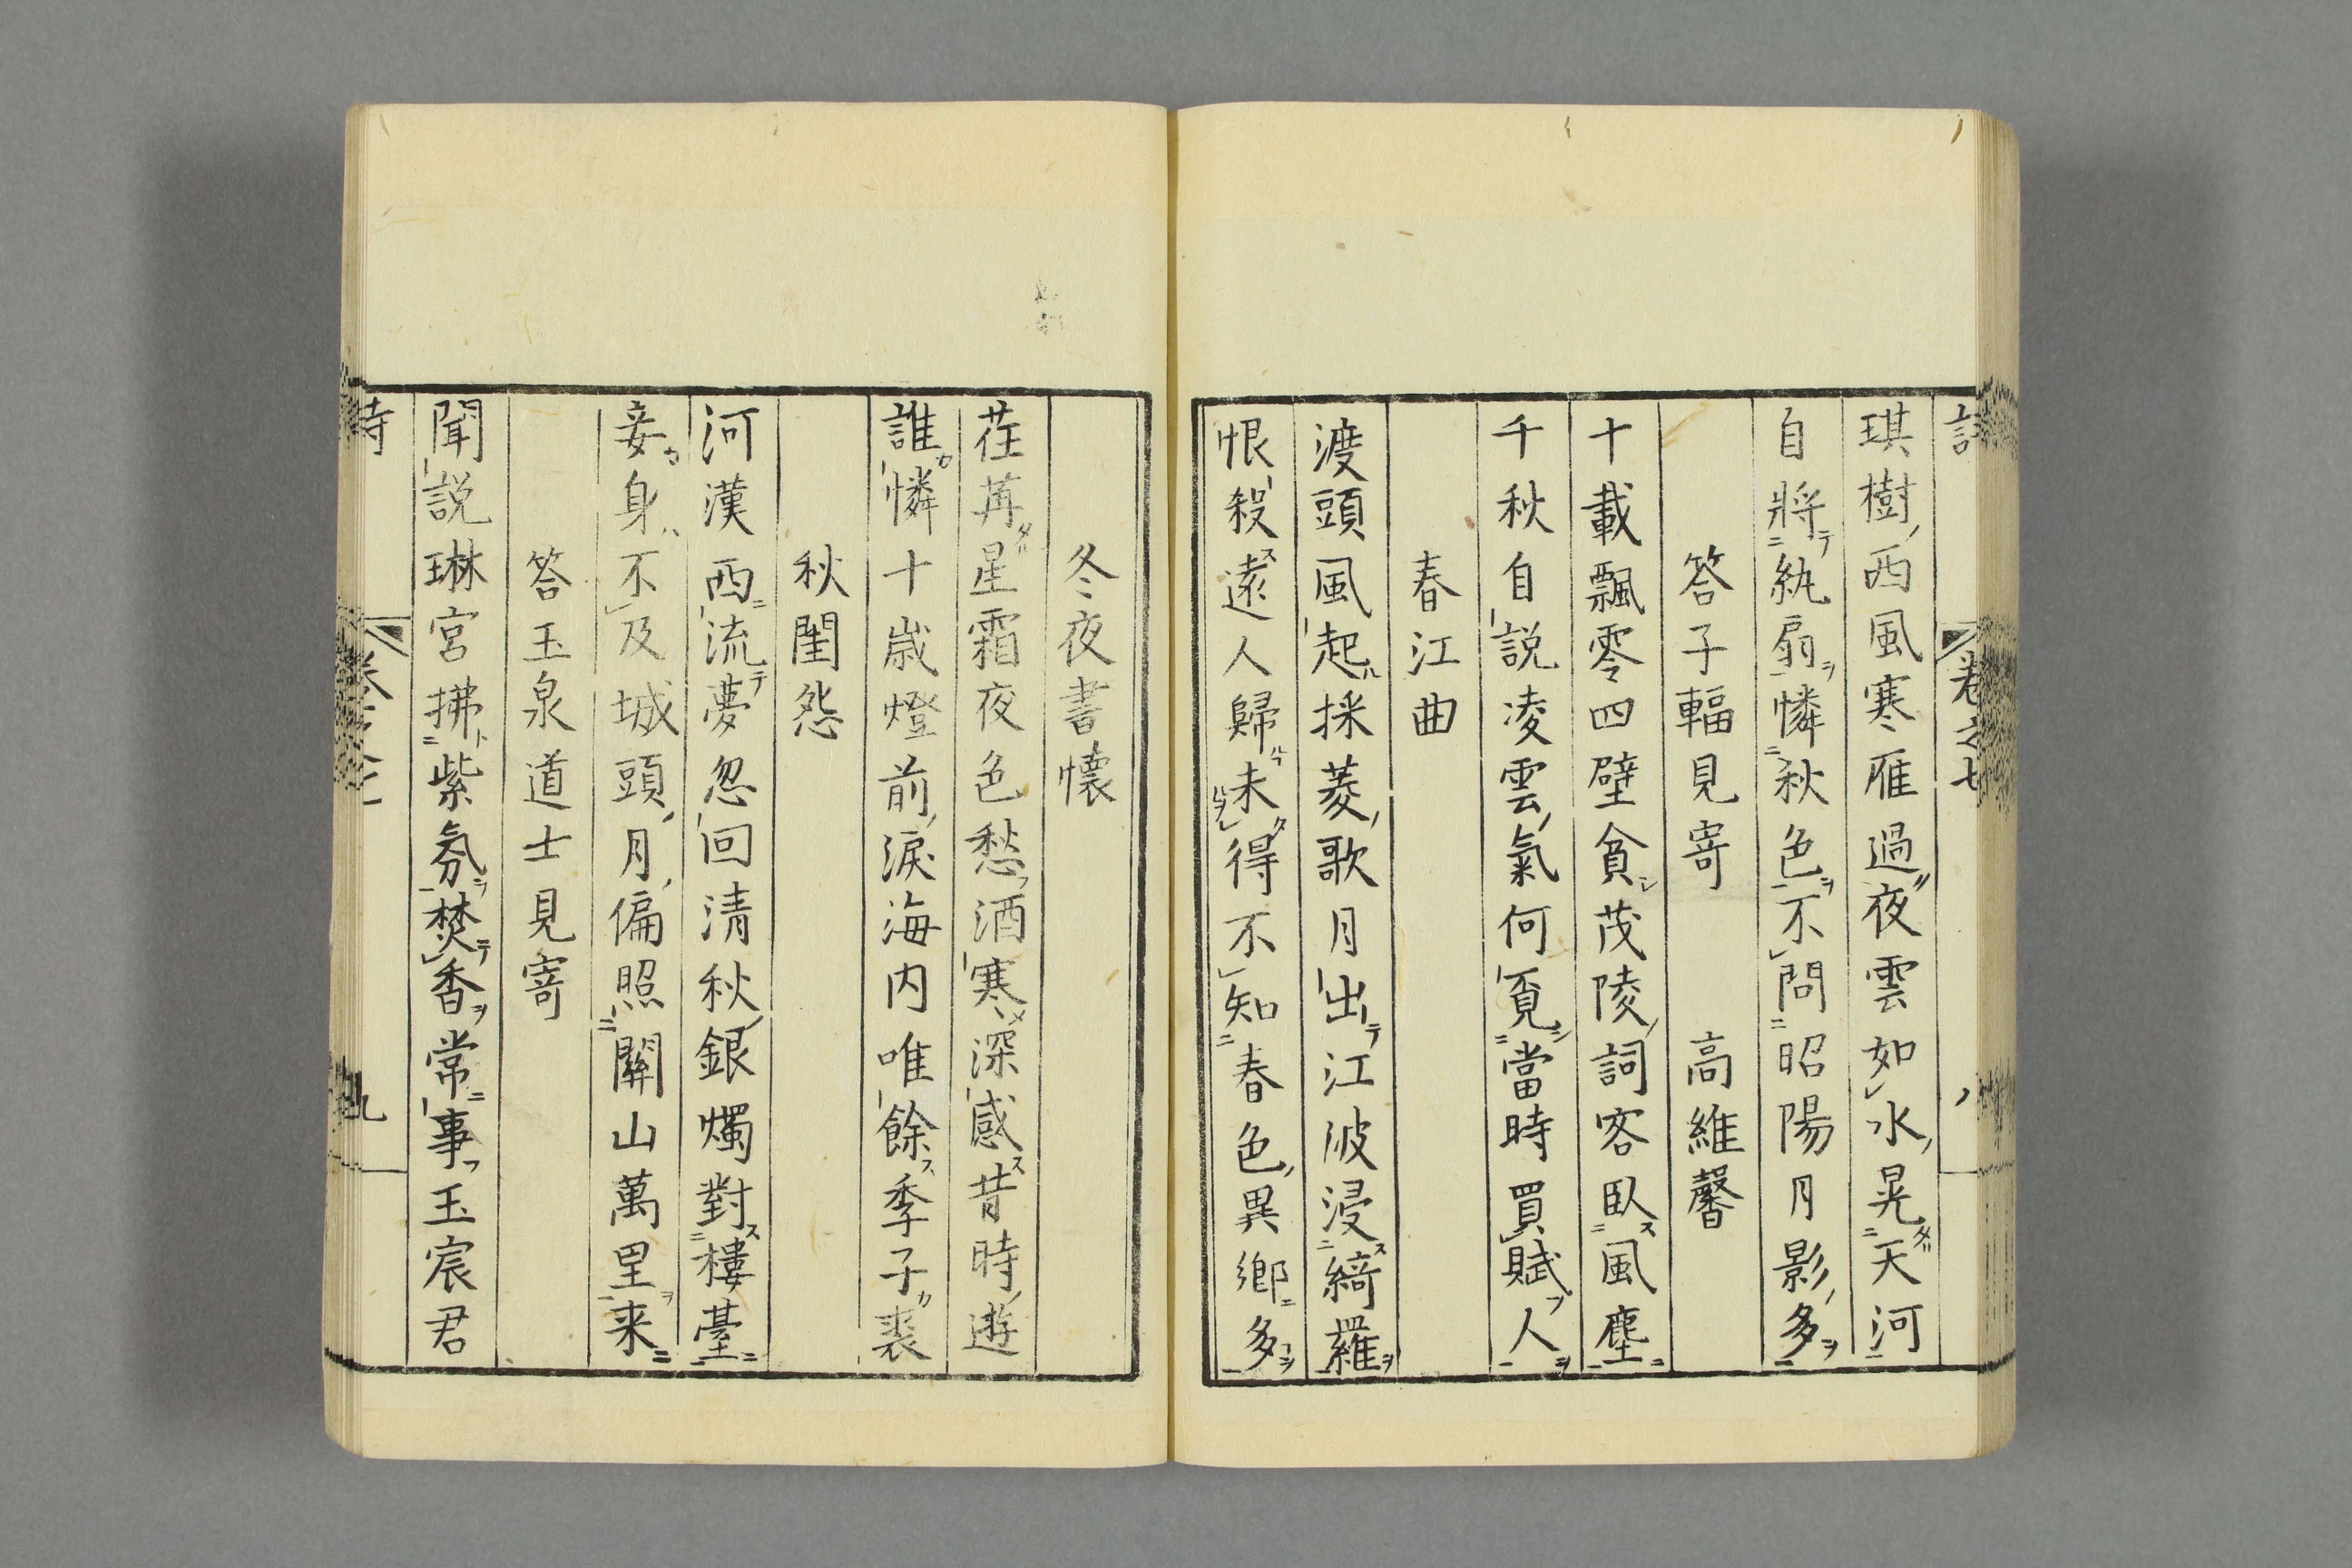 琪樹西風寒雁過夜雲如水晃天河
自將紈扇憐秋色不問昭陽月影多
答子輻見寄　高維馨
十載飄零四壁貧茂陵詞客臥風塵
千秋自說凌雲氣何覓當時買賦人
春江曲
渡頭風起採菱歌月出江波浸綺羅
恨殺遠人歸未得不知春色異鄉多
冬夜書懷
荏苒星霜夜色愁酒寒深感昔時遊
誰憐十歲燈前淚海內唯餘季子裘
秋閨怨
河漢西流夢忽回清秋銀燭對樓臺
妾身不及城頭月偏照關山萬里来
答玉泉道士見寄
聞說琳宮拂紫氛焚香常事玉宸君